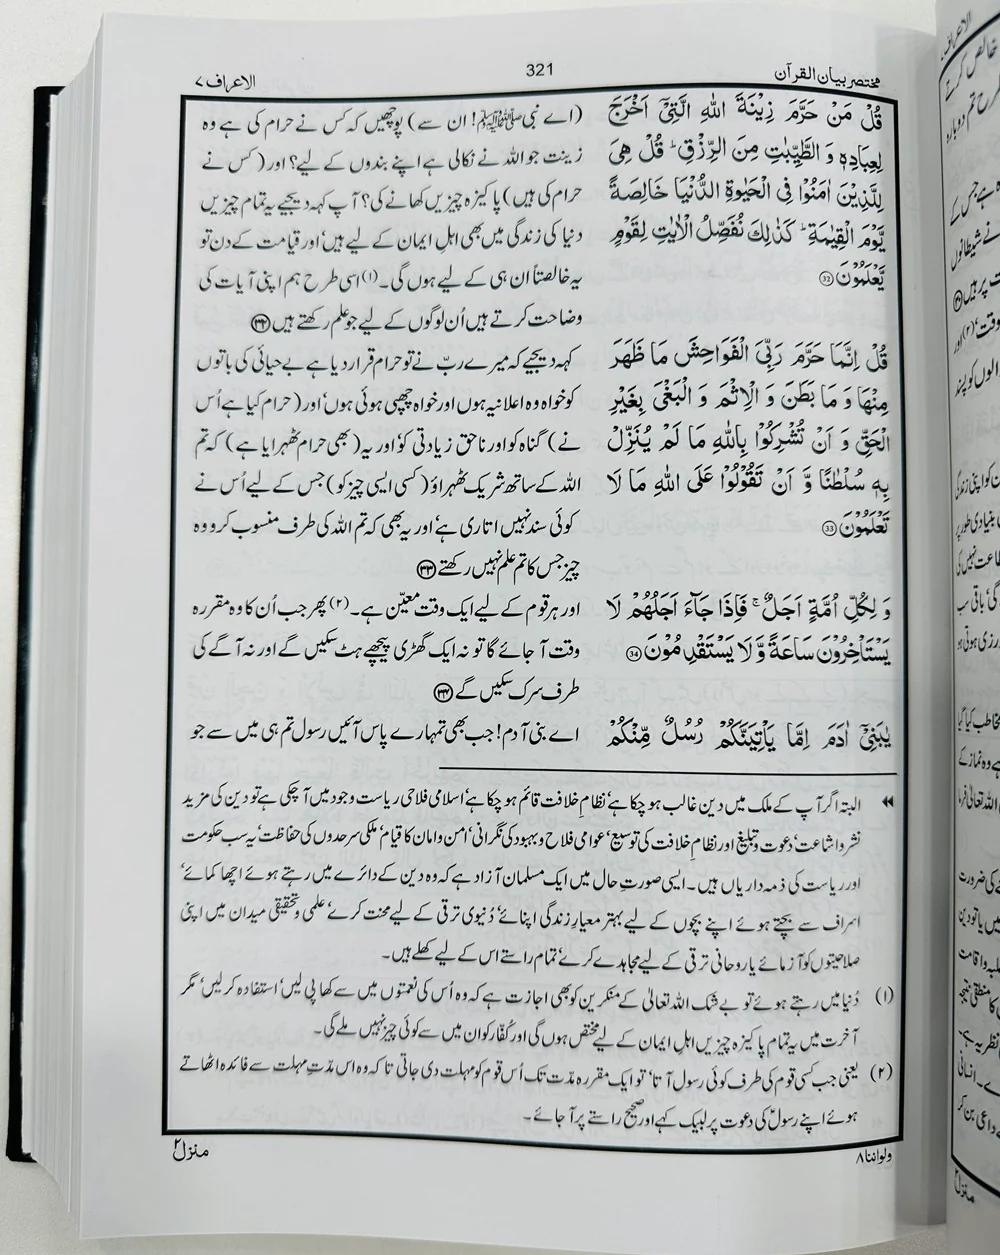 مختصر بیان القرآن
321
الاعراف ۷
قُلْ مَنْ حَرَّمَ زِیْنَةَ اللّٰهِ الَّتِیْۤ اَخْرَجَ
لِعِبَادِهٖ وَ الطَّیِّبٰتِ مِنَ الرِّزْقِ ؕ قُلْ هِیَ
لِلَّذِیْنَ اٰمَنُوْا فِی الْحَیٰوةِ الدُّنْیَا خَالِصَةً
یَّوْمَ الْقِیٰمَةِ ؕ كَذٰلِكَ نُفَصِّلُ الْاٰیٰتِ لِقَوْمٍ
یَّعْلَمُوْنَ 32
(اے نبی ﷺ! ان سے) پوچھیں کہ کس نے حرام کی ہے وہ
زینت جو اللہ نے نکالی ہے اپنے بندوں کے لیے؟ اور (کس نے
حرام کی ہیں) پاکیزہ چیزیں کھانے کی؟ آپ کہہ دیجیے یہ تمام چیزیں
دنیا کی زندگی میں بھی اہلِ ایمان کے لیے ہیں‘ اور قیامت کے دن تو
یہ خالصتاً ان ہی کے لیے ہوں گی۔(۱) اسی طرح ہم اپنی آیات کی
وضاحت کرتے ہیں اُن لوگوں کے لیے جو علم رکھتے ہیں ۳۲
قُلْ اِنَّمَا حَرَّمَ رَبِّیَ الْفَوَاحِشَ مَا ظَهَرَ
مِنْهَا وَ مَا بَطَنَ وَ الْاِثْمَ وَ الْبَغْیَ بِغَیْرِ
الْحَقِّ وَ اَنْ تُشْرِكُوْا بِاللّٰهِ مَا لَمْ یُنَزِّلْ
بِهٖ سُلْطٰنًا وَّ اَنْ تَقُوْلُوْا عَلَی اللّٰهِ مَا لَا
تَعْلَمُوْنَ 33
کہہ دیجیے کہ میرے ربّ نے تو حرام قرار دیا ہے بے حیائی کی باتوں
کو خواہ وہ اعلانیہ ہوں اور خواہ چھپی ہوئی ہوں‘ اور (حرام کیا ہے اُس
نے) گناہ کو اور ناحق زیادتی کو‘ اور یہ (بھی حرام ٹھہرایا ہے) کہ تم
اللہ کے ساتھ شریک ٹھہراؤ (کسی ایسی چیز کو) جس کے لیے اُس نے
کوئی سند نہیں اتاری ہے‘ اور یہ بھی کہ تم اللہ کی طرف منسوب کرو وہ
چیز جس کا تم علم نہیں رکھتے ۳۳
وَ لِكُلِّ اُمَّةٍ اَجَلٌ ۚ فَاِذَا جَآءَ اَجَلُهُمْ لَا
یَسْتَاْخِرُوْنَ سَاعَةً وَّ لَا یَسْتَقْدِمُوْنَ 34
اور ہر قوم کے لیے ایک وقت معیّن ہے۔(۲) پھر جب اُن کا وہ مقررہ
وقت آ جائے گا تو نہ ایک گھڑی پیچھے ہٹ سکیں گے اور نہ آگے کی
طرف سرک سکیں گے ۳۴
یٰبَنِیْۤ اٰدَمَ اِمَّا یَاْتِیَنَّكُمْ رُسُلٌ مِّنْكُمْ
اے بنی آدم! جب بھی تمہارے پاس آئیں رسول تم ہی میں سے جو
البتہ اگر آپ کے ملک میں دین غالب ہو چکا ہے‘ نظامِ خلافت قائم ہو چکا ہے‘ اسلامی فلاحی ریاست وجود میں آ چکی ہے تو دین کی مزید
نشر و اشاعت‘ دعوت و تبلیغ اور نظامِ خلافت کی توسیع‘ عوامی فلاح و بہبود کی نگرانی‘ امن و امان کا قیام‘ ملکی سرحدوں کی حفاظت‘ یہ سب حکومت
اور ریاست کی ذمہ داریاں ہیں۔ ایسی صورتِ حال میں ایک مسلمان آزاد ہے کہ وہ دین کے دائرے میں رہتے ہوئے اچھا کمائے‘
اسراف سے بچتے ہوئے اپنے بچوں کے لیے بہتر معیارِ زندگی اپنائے‘ دُنیوی ترقی کے لیے محنت کرے‘ علمی و تحقیقی میدان میں اپنی
صلاحیتوں کو آزمائے یا روحانی ترقی کے لیے مجاہدے کرے‘ تمام راستے اس کے لیے کھلے ہیں۔
(۱) دُنیا میں رہتے ہوئے تو بے شک اللہ تعالیٰ کے منکرین کو بھی اجازت ہے کہ وہ اُس کی نعمتوں میں سے کھا پی لیں‘ استفادہ کر لیں‘ مگر
آخرت میں یہ تمام پاکیزہ چیزیں اہلِ ایمان کے لیے مختص ہوں گی اور کُفار کو ان میں سے کوئی چیز نہیں ملے گی۔
(۲) یعنی جب کسی قوم کی طرف کوئی رسول آتا‘ تو ایک مقررہ مدّت تک اُس قوم کو مہلت دی جاتی تا کہ وہ اس مدّتِ مہلت سے فائدہ اٹھاتے
ہوئے اپنے رسولؑ کی دعوت پر لبیک کہے اور صحیح راستے پر آ جائے۔
ولو اننا ۸
منزل ۲